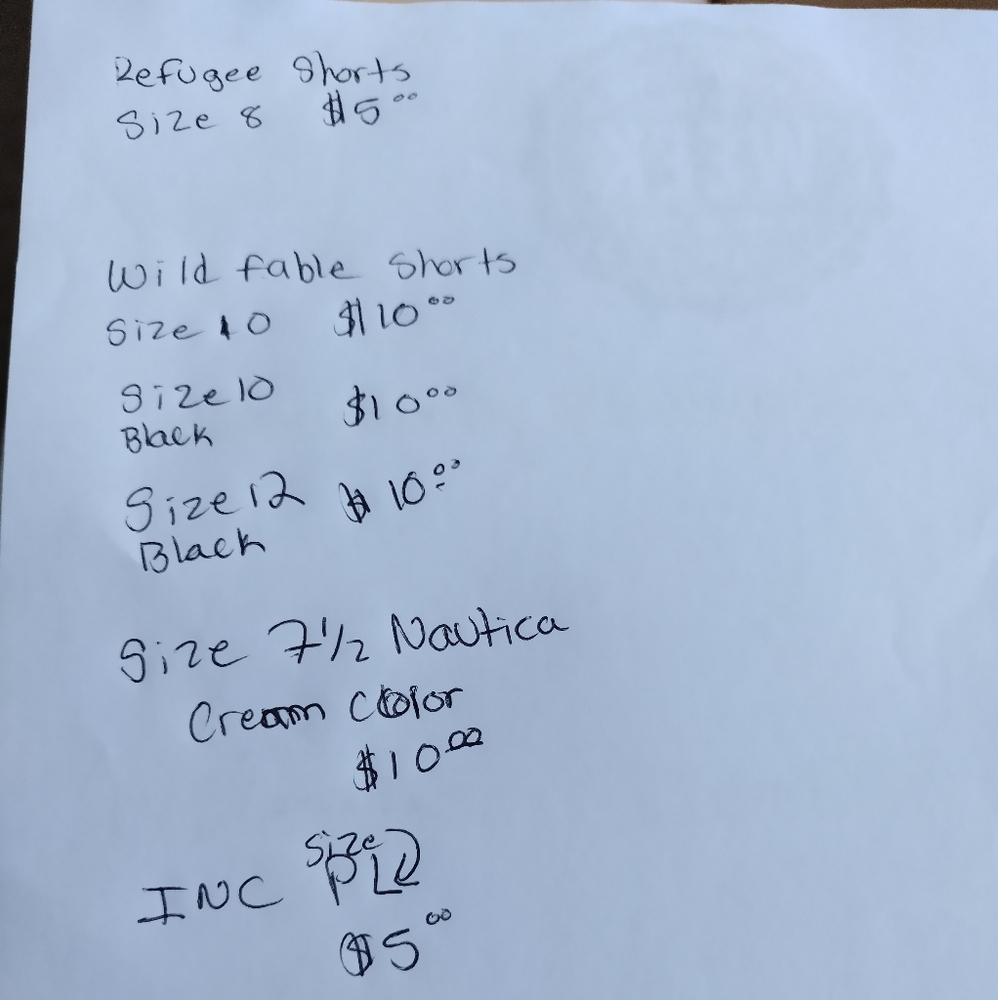 Refugee Shorts
Size 8 $5.00
Wild fable Shorts
Size 10 $10.00
Size 10 $10.00
Black
Size 12 $10.00
Black
Size 7 1/2 Nautica
Cream Color
$10.00
Size
INC
$5.00